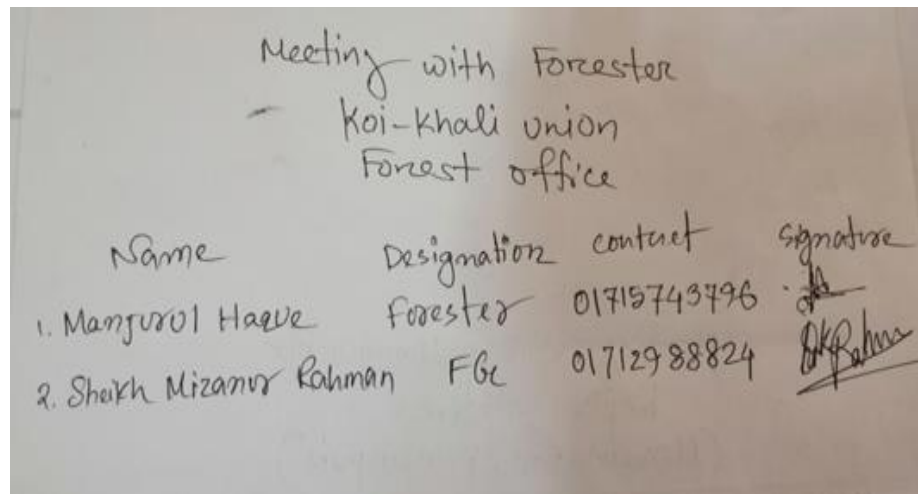 Meeting with Forester
Koi-Khali union
Forest office
Name Designation contact signature
1. Manjurul Haque Forester 01715743796
2. Sheikh Mizanur Rahman FGC 01712988824